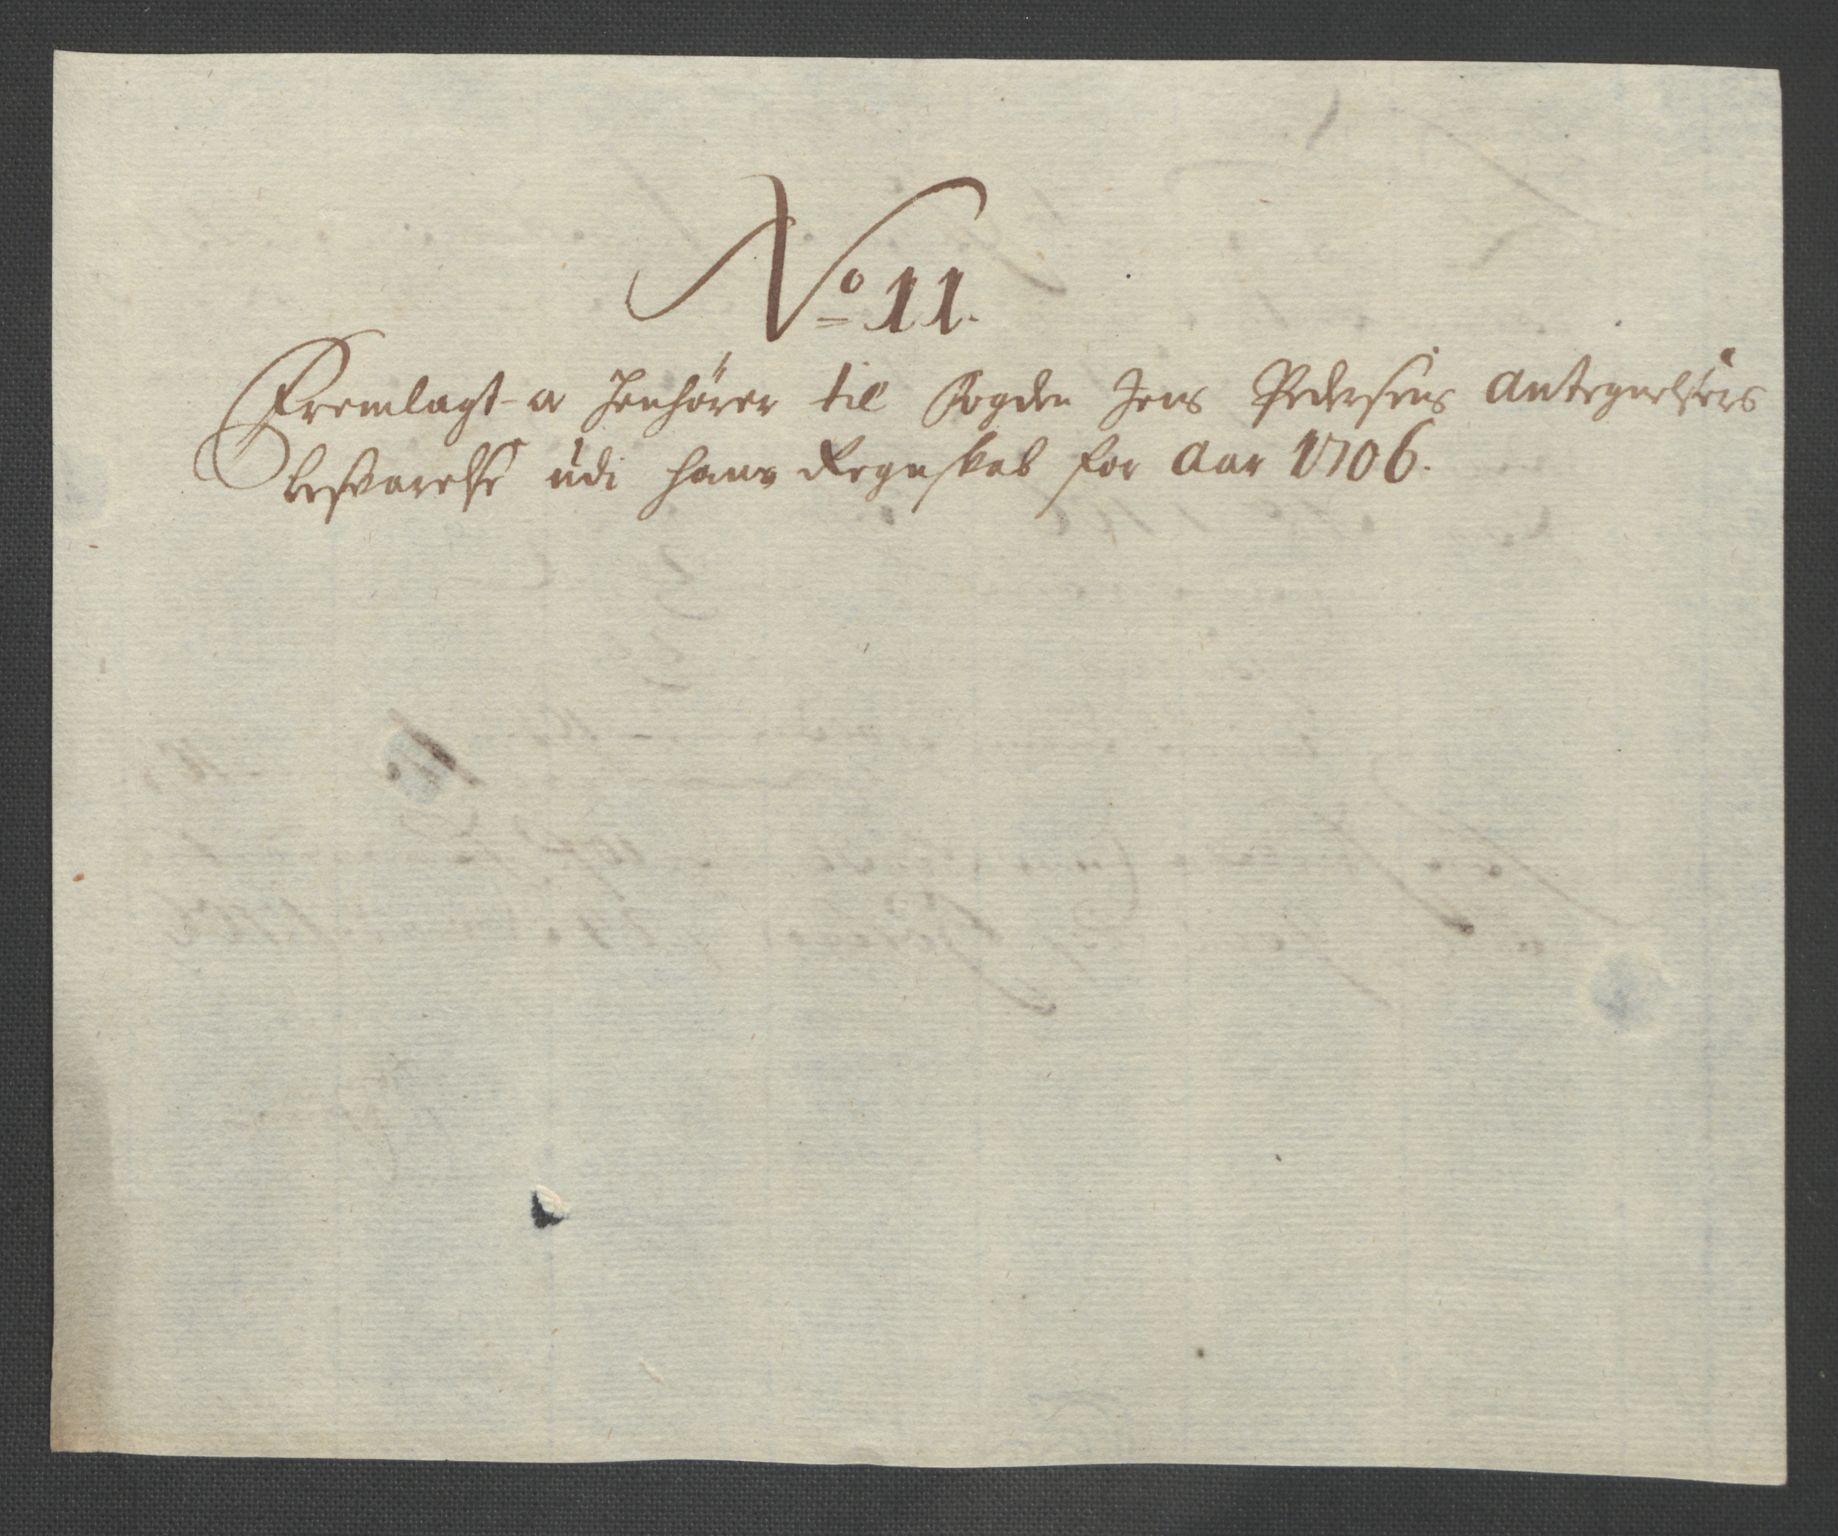 No 11.
Fremlagt - og henhører til Fogden Jens Pedersens Antegnelsers
besvarelse udi hans Regnskab for Aar 1706.